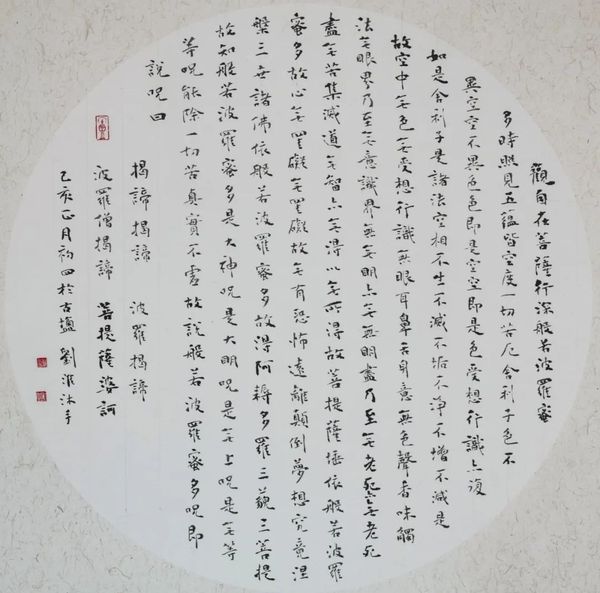 觀自在菩薩行深般若波羅蜜
多時照見五蘊皆空度一切苦厄舍利子色不
異空空不異色色即是空空即是色受想行識亦復
如是舍利子是諸法空相不生不滅不垢不淨不增不減是
故空中无色无受想行識無眼耳鼻舌身意無色聲香味觸
法无眼界乃至无意識界无无明亦无無明盡乃至无老死亦无老死
盡无苦集滅道无智亦无得以无所得故菩提薩埵依般若波羅
蜜多故心无罣礙无罣礙故无有恐怖遠離顛倒夢想究竟涅
槃三世諸佛依般若波羅蜜多故得阿耨多羅三藐三菩提
故知般若波羅蜜多是大神呪是大明呪是无上呪是无等
等呪能除一切苦真實不虛故說般若波羅蜜多呪即
說呪曰
揭諦揭諦 波羅揭諦
波羅僧揭諦 菩提薩婆訶
己亥正月初四於古鹽劉淮沐手